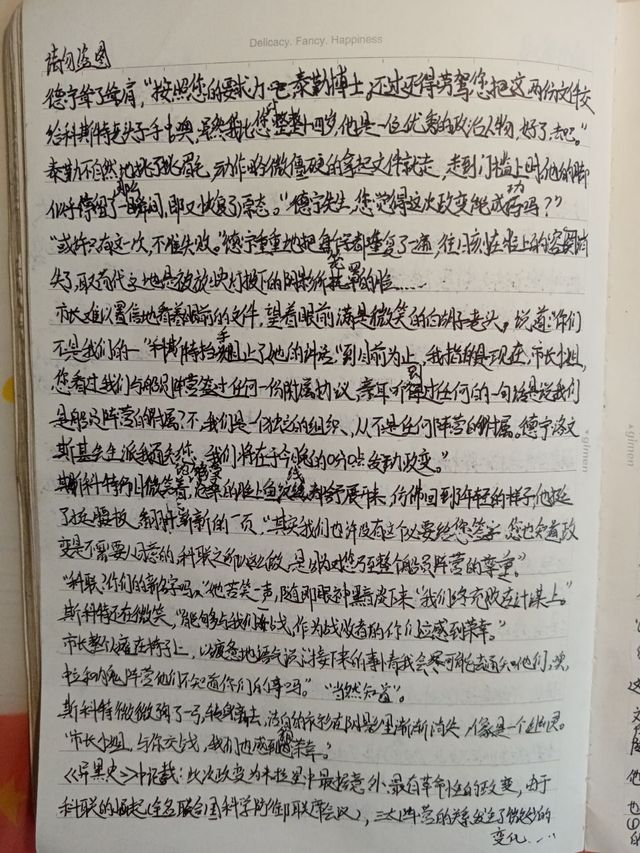 Delicacy. Fancy. Happiness
请勿盗图
德宁耸了耸肩，“按照您的要求力 泰勒博士，不过还得劳驾您把这两份文件交
给科斯特老头子手上噢，虽然我比您整整小四岁，他是一位优秀的政治人物，好了，去吧。”
泰勒不自然地挑了挑眉毛，动作略微僵硬的拿起文件就走，走到门槛上时他的脚
似乎停留了一瞬间，即又恢复了常态。“德宁先生，您觉得这次政变能成功吗？”
“或许只有这一次，不准失败。”德宁重重地把每个字都重复了一遍，往日刻在脸上的容
失了，取而代之地是被放映灯投下的阴影所笼罩的脸……
市长难以置信地看着眼前的文件，望着眼前满是微笑的白胡子老头，说道“你们
不是我们的一”科斯特挡手阻止了她的讲话“到目前为止，我指的是现在，市长小姐，
您看过我们与船员阵营签过任何一份附属协议，亦或听到过任何的一句话是说我们
是船员阵营的附属？不，我们是一个独立的组织，从不是任何阵营的附属。德宁洛文
斯基先生派我通知您，我们将在于今晚的0分0点发动政变。”
斯科特仍旧微笑着，脸上鱼纹 都舒展开来，仿佛回到了年轻的样子，他挺
了挺腰板，翻开新的一页，“其实我们也许没有这个必要给您签字，您也知道政
变是不需要人同意的，科联之所以这么做，是出于对您乃至整个船员阵营的尊重。”
“科联？你们的新名字吗。”她苦笑一声，随即眼神黑沉下来“我们终究败在计谋上。”
斯科特还在微笑，“能够与我们一战，作为战败者的你们应感到荣幸。”
市长整个人瘫在椅子上，以疲惫地语气说“接下来的事儿看我会尽可能去通知他们，噢，
中立和内鬼阵营他们不知道你们的事吗。”“当然知道”。
斯科特微微鞠了一弓，转身离去，洁白的衣衫在阴影里渐渐消失，像是一个幽灵。
“市长小姐，与你交战，我们也感到很荣幸。”
《异黑史》中记载：此次政变为米拉里中最振意外、最有革命性的政变，由于
科联的崛起（全名联合国科学防御联席会议），三大阵营的关系发生了微妙的
变化……